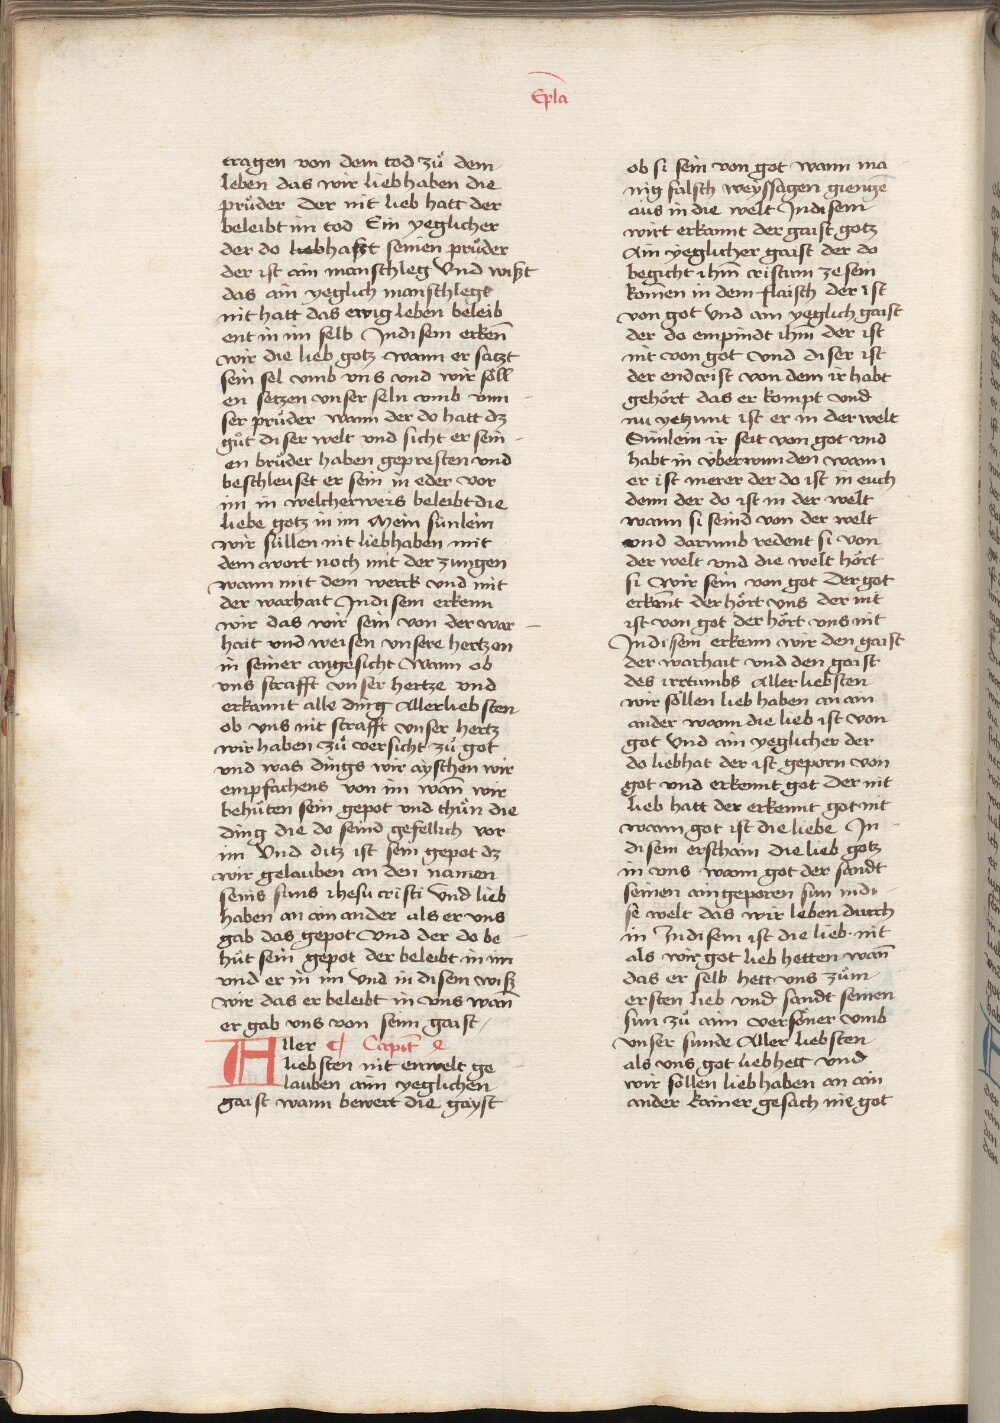 Epla
tragen von dem tod zů dem
leben das wir lieb haben die
průder Der nit lieb hatt der
beleibt im tod Ein yeglicher
der do liebhaßt seinen průder
der ist ain manschleg Vnd wißt
das ain yeglich manschlege
nit hatt das ewig leben beleib
ent in im selb In disem erkeñ
wir die lieb gotz wann er satzt
sein sel vmb vns vnd wir söll
en setzen vnser seln vmb vnn
ser průder wann der do hatt dz
gůt diser welt vnd sicht er sein
en brůder haben gepresten vnd
beschleuset er sein in eder vor
im in welcherweis beleibt die
liebe gotz in im Mein sünlein
wir süllen nit liebhaben mit
dem wort noch mit der zungen
wann mit dem werck vnd mit
der warhait In disem erkenn
wir das wir sein von der war
hait vnd weisen vnsere hertzen
in seiner angesicht Wann ob
vns strafft vnser hertze vnd
erkannt alle ding Allerliebsten
ob vns nit strafft vnser hertz
wir haben zů versicht zů got
vnd was dings wir ayschen wir
empfachens von im wañ wir
behůten sein gepot vnd thůn die
ding die do seind gefellich vor
im Vnd ditz ist sein gepot dz
wir gelauben an den namen
seins suns ihesu cristi Vnd lieb
haben an ain ander als er vns
gab das gepot Vnd der do be
hůt sein gepot der beleibt in im
vnd er in im Vnd in disem wiß
wir das er beleibt in vns wañ
er gab vns von seim gaist
Aller ¶ Capit 4
liebsten nit enwelt ge
lauben aim yeglichen
gaist wann bewert die gayst
ob si sein von got wann ma
nig falsch weyssagen gienge
aus in die welt In disem
wirt erkannt der gaist gotz
Ain yeglicher gaist der do
begicht ihm̄ cristum ze sein
komen in dem flaisch der ist
von got Vnd ain yeglich gaist
der do empindt ihm̄ der ist
nit von got Vnd diser ist
der endcrist von dem ir habt
gehört das er kompt vnd
nu yetzunt ist er in der welt
Sünlein ir seit von got vnd
habt in überwunden wann
er ist merer der do ist in euch
denn der do ist in der welt
wann si seind von der welt
vnd darumb redent si von
der welt vnd die welt hört
si Wir sein von got Der got
erkannt der hört vns der nit
ist von got der hört vns nit
In disem erkenn wir den gaist
der warhait vnd den gaist
des irrtumbs Aller liebsten
wir söllen lieb haben an ain
ander wann die lieb ist von
got Vnd ain yeglicher der
do liebhat der ist geporn von
got vnd erkennt got Der nit
lieb hatt der erkennt got nit
wann got ist die liebe In
disem erschain die lieb gotz
in vns wann got der sandt
seinen aingeporen sun in di
se welt das wir leben durch
in In disem ist die lieb nit
als wir got lieb hetten wañ
das er selb hett vns zům
ersten lieb vnd sandt seinen
sun zů aim versöner vmb
vnser sunde Aller liebsten
als vns got lieb hett vnd
wir söllen lieb haben an ain
ander kainer gesach nie got